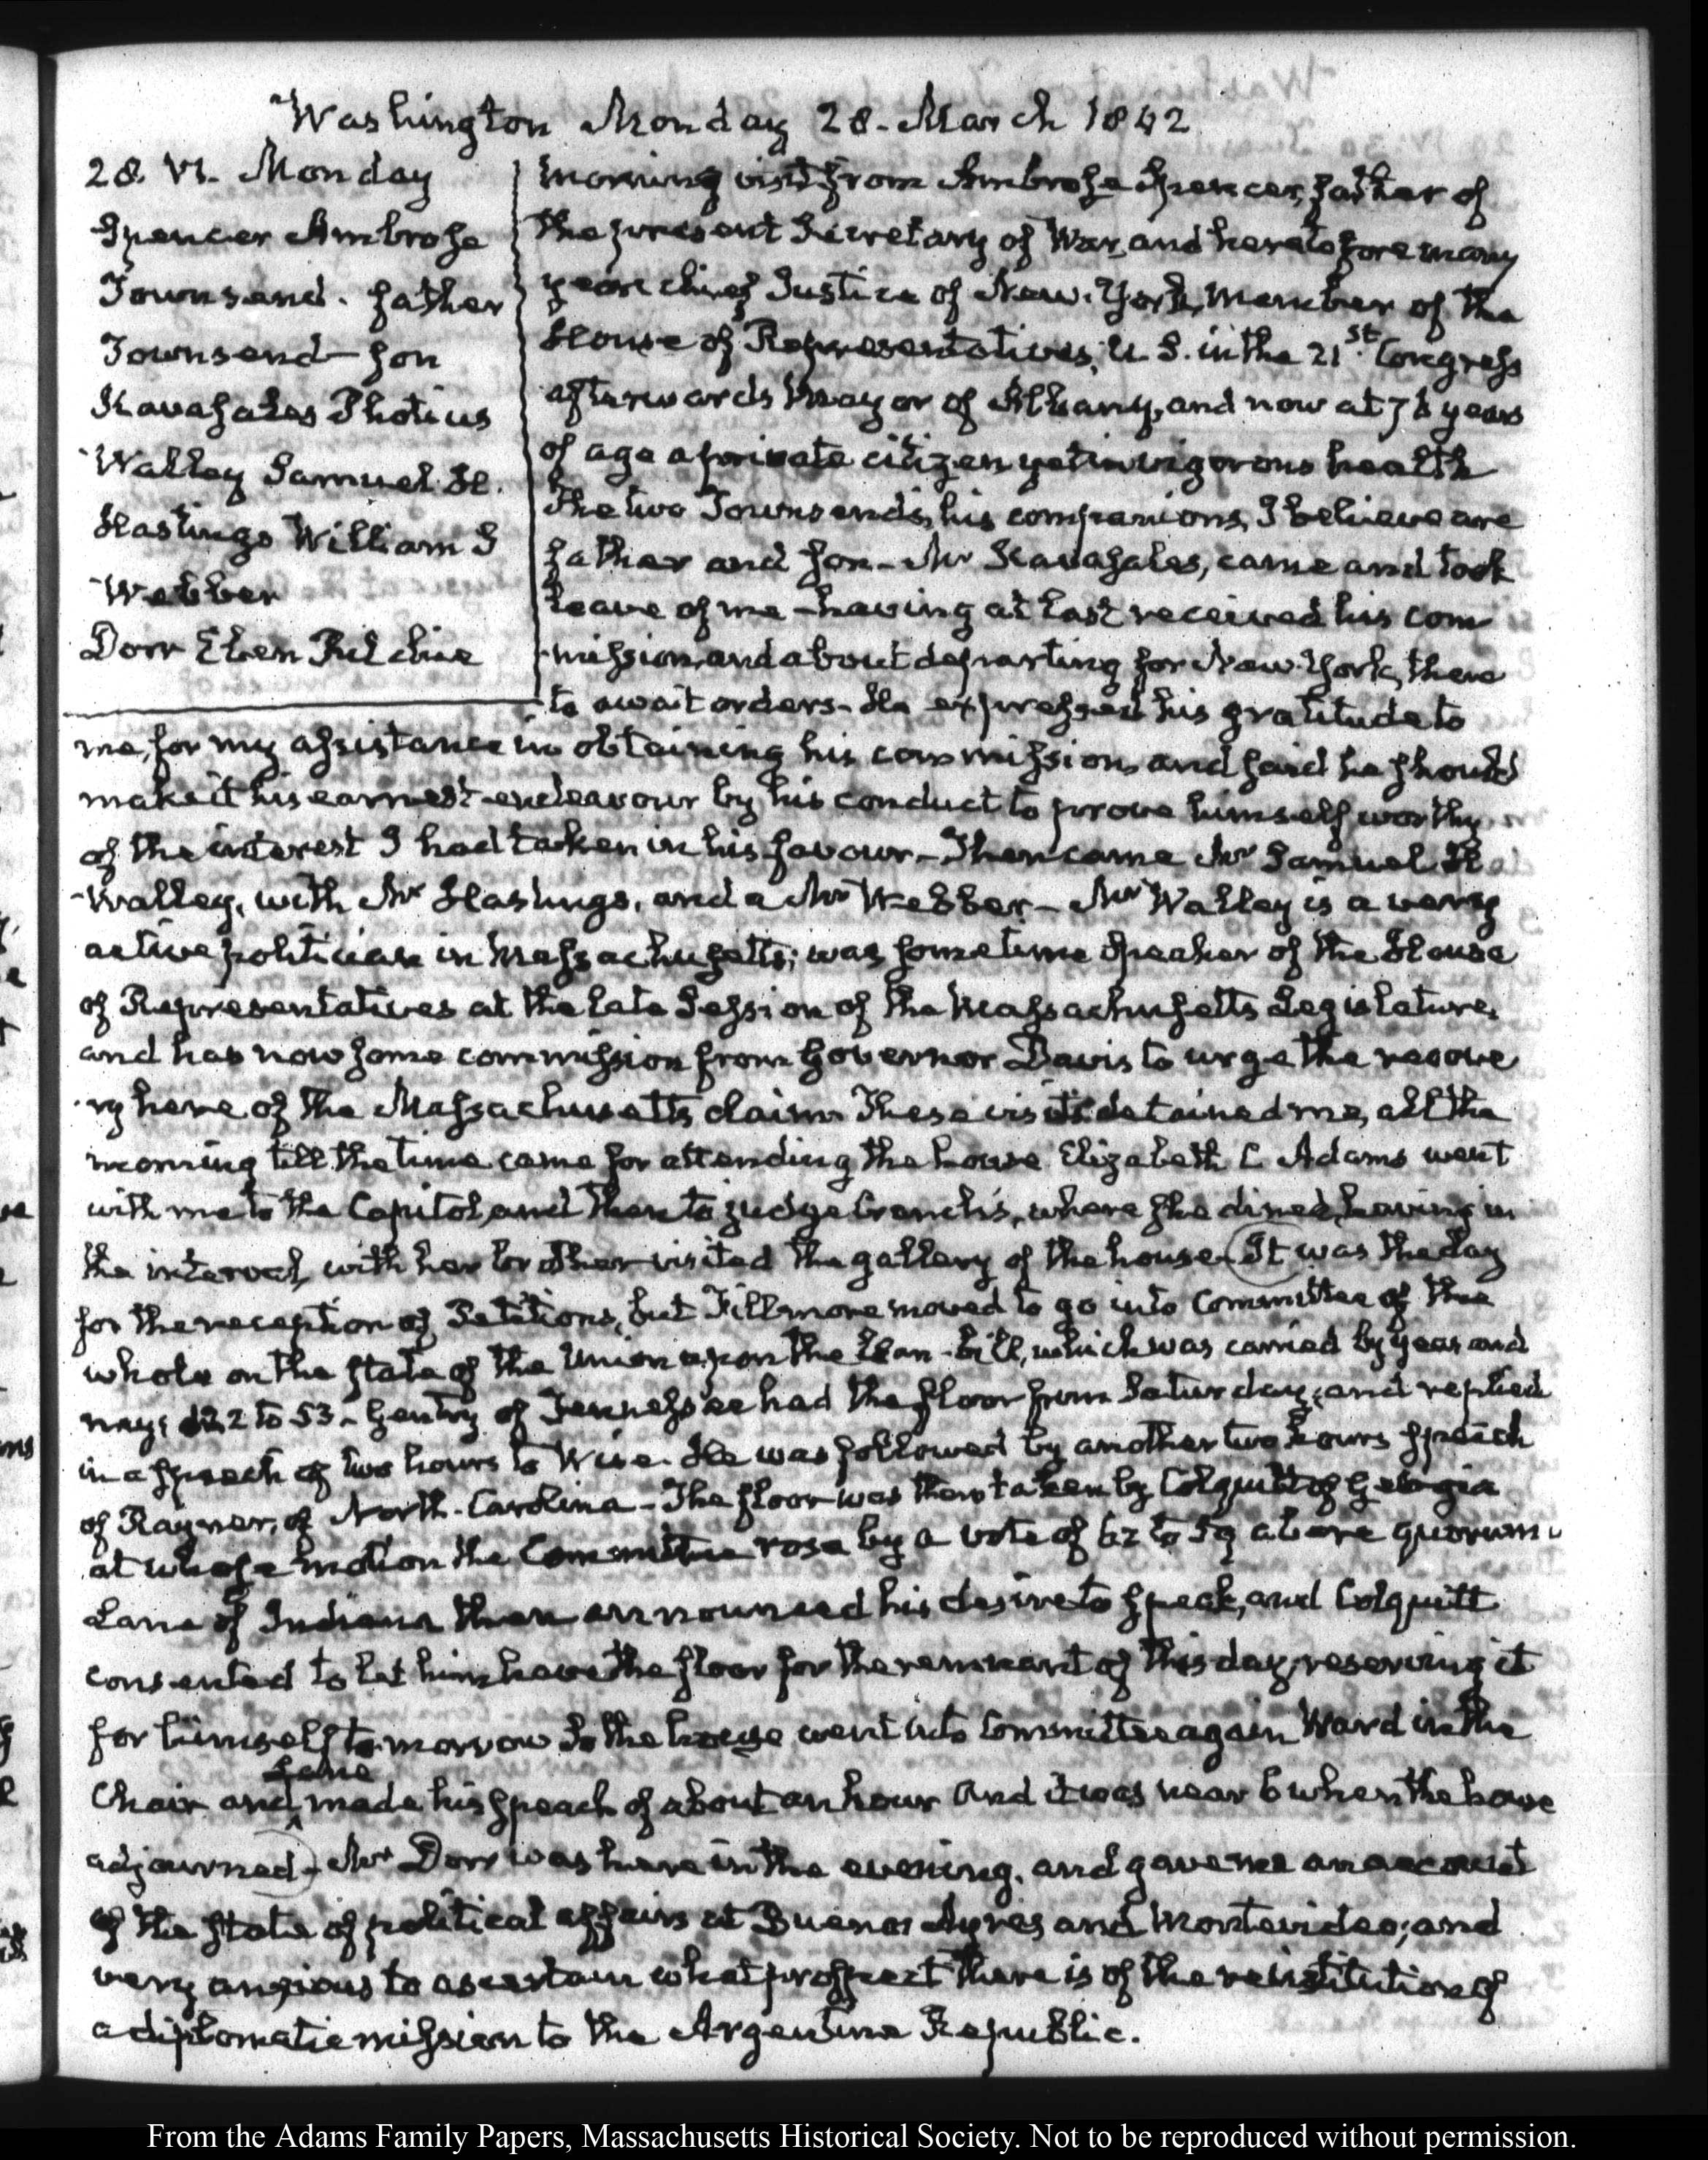 Washington Monday 28. March 1842
28. VI. Monday
Spencer Ambrose
Townsend. father
Townsend son
Kavasales Photius
Walley Samuel H.
Hastings William S
Webber
Dorr Eben Ritchie
Morning visit from Ambrose Spencer, father of
the present Secretary of War, and heretofore many
years chief Justice of New-York, Member of the
House of Representatives, U. S. in the 21st. Congress
afterwards Mayor of Albany, and now at years
of age a private citizen yet in vigorous health
The two Townsends, his companions, I believe are
father and son- Mr Kavasales, came and took
leave of me - having at last received his com
mission, and about departing for New-York, there
to await orders- He expressed his gratitude to
me, for my assistance in obtaining his commission, and said he should
make it his earnest endeavour by his conduct to prove himself worthy
of the interest I had taken in his favour- Then came Mr Samuel H
Walley, with Mr Hastings, and a Mr Webber- Mr Walley is a very
active politician in Massachusetts; was sometime Speaker of the House
of Representatives at the late Session of the Massachusetts Legislature,
and has now some commission from Governor Davis to urge the recove
ry here of the Massachusetts claim. These visits detained me, all the
morning till the time came for attending the house Elizabeth C Adams went
with me to the Capitol, and then to judge Cranch's, where she dined, having in
the interval, with her brother visited the gallery of the house- It was the day
for the reception of Petitions, but Fillmore moved to go into Committee of the
whole on the state of the Union upon the Loan-bill, which was carried by yeas and
nays 122 to 53- Gentry of Tennessee had the floor from Saturday, and replied
in a speech of two hours to Wise. He was followed by another two hours speech
of Rayner, of North-Carolina- The floor was then taken by Colquitt of Georgia
at whose motion the Committee rose by a vote of 62 to 59 a bare quorum
Lane of Indiana then announced his desire to speak, and Colquitt
consented to let him have the floor for the remnant of this day, reserving it
for himself to-morrow So the house went into Committee again Ward in the
Chair and Lane made his speech of about an hour and it was near 6 when the house
adjourned- Mr Dorr was here in the evening, and gave me an account
of the state of political affairs at Buenos Ayres and Montevideo; and
very anxious to ascertain what prospect there is of the reinstitution of
a diplomatic mission to the Argentine Republic.
From the Adams Family Papers, Massachusetts Historical Society. Not to be reproduced without permission.